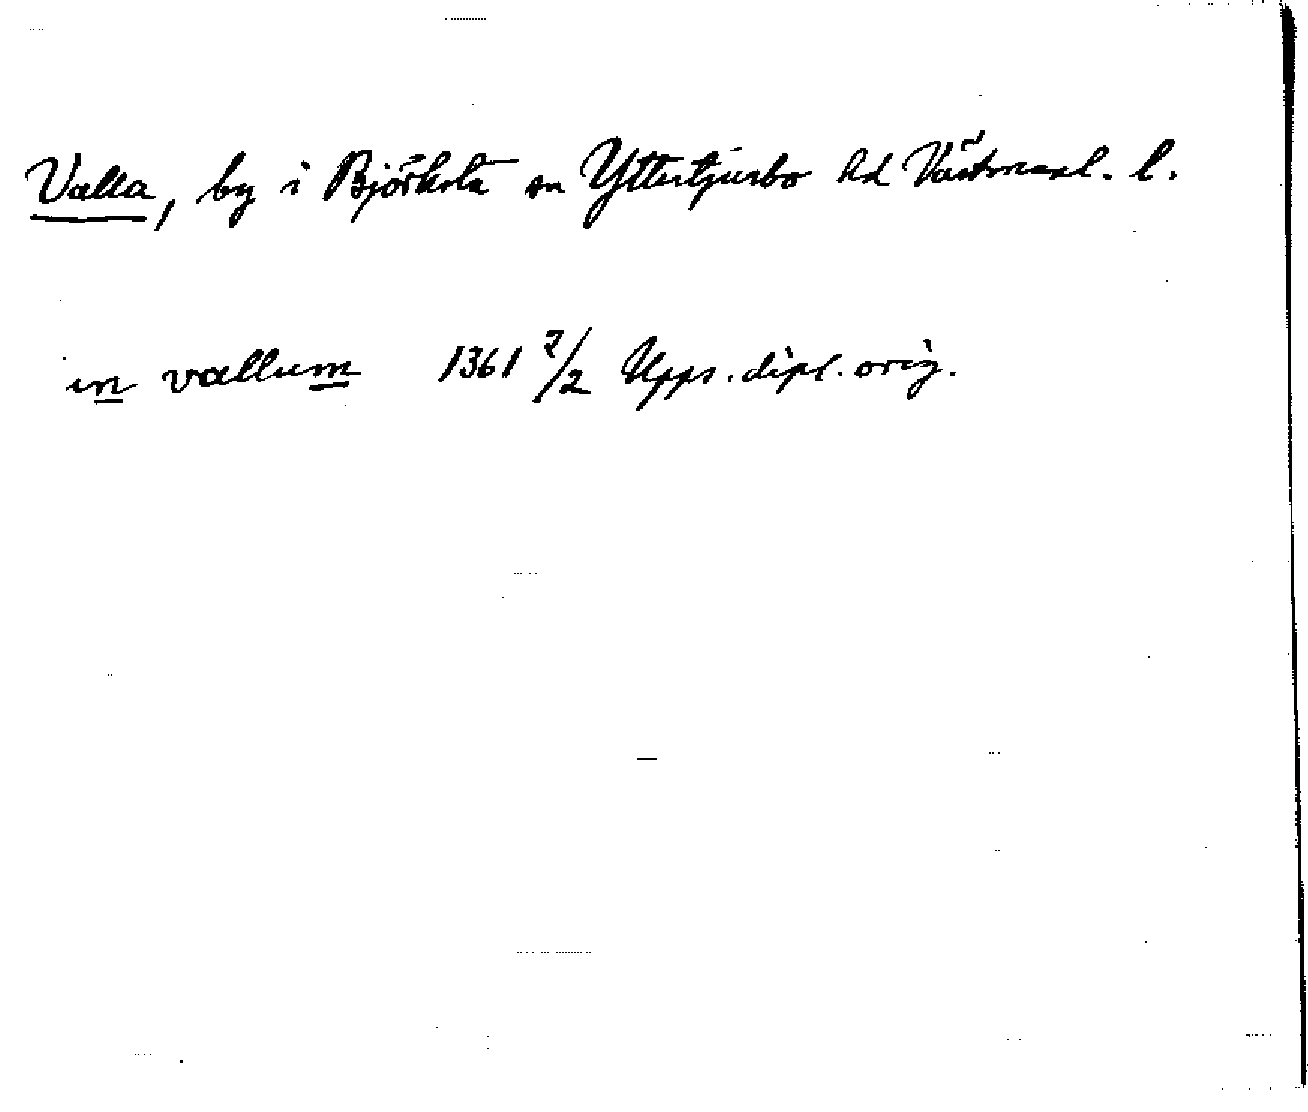 Valla, by i Björksta sn Yttertjurbo hd Västmanl. l.
in vallum 1361 2/2 Upps. dipl. orig.